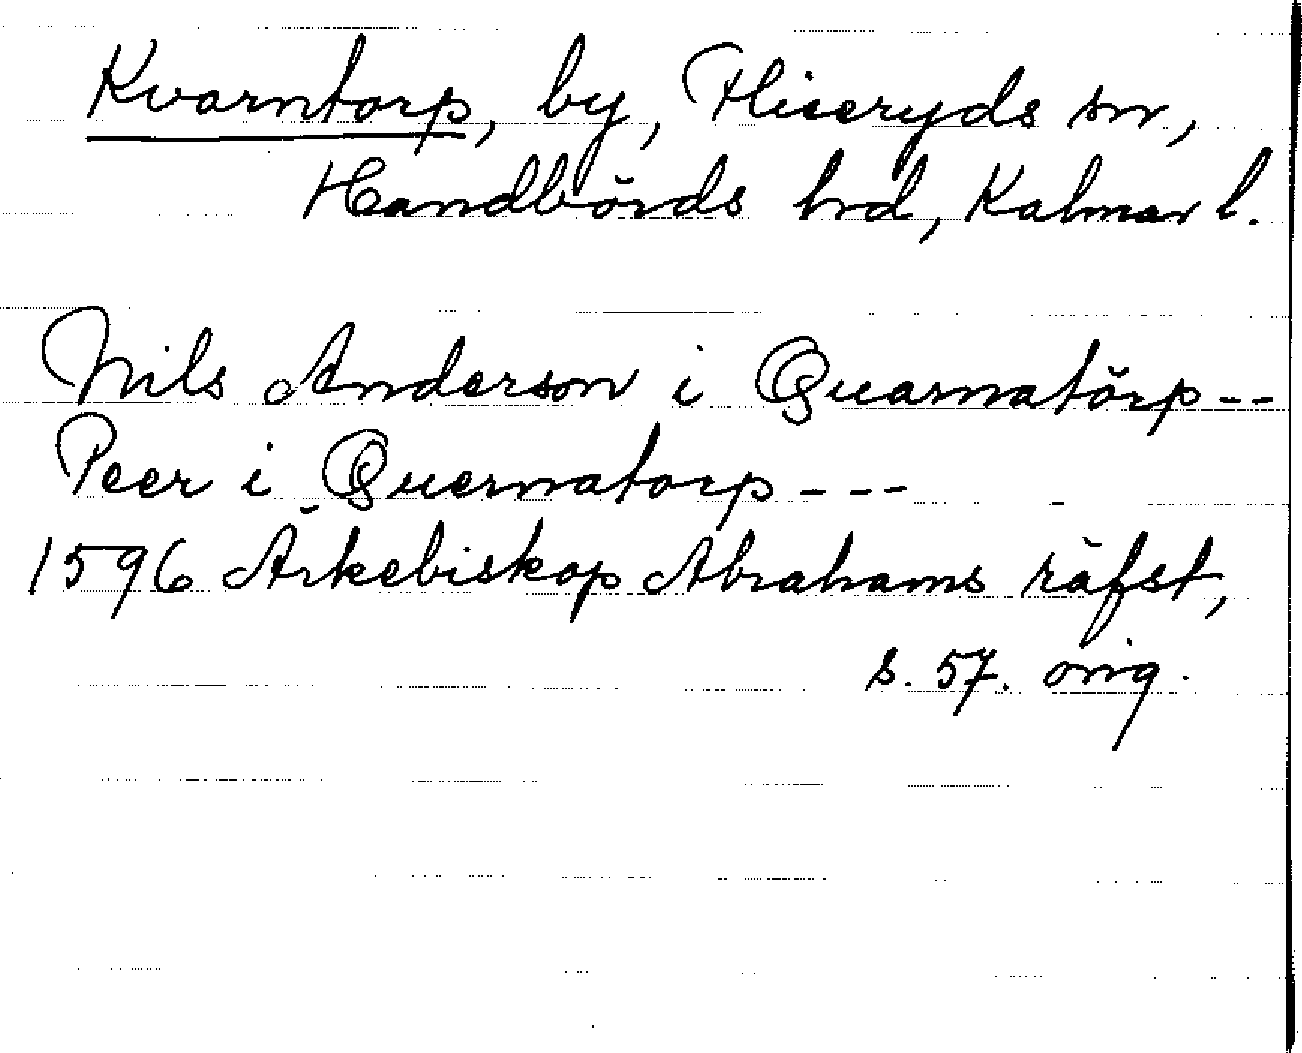 Kvarntorp, by, Fliseryds sn,
Handbörds hrd, Kalmar l.
Nils Anderson i Quarnatörp--
Peer i Quernatorp---
1596 Ärkebiskop Abrahams räfst,
s. 57. orig.